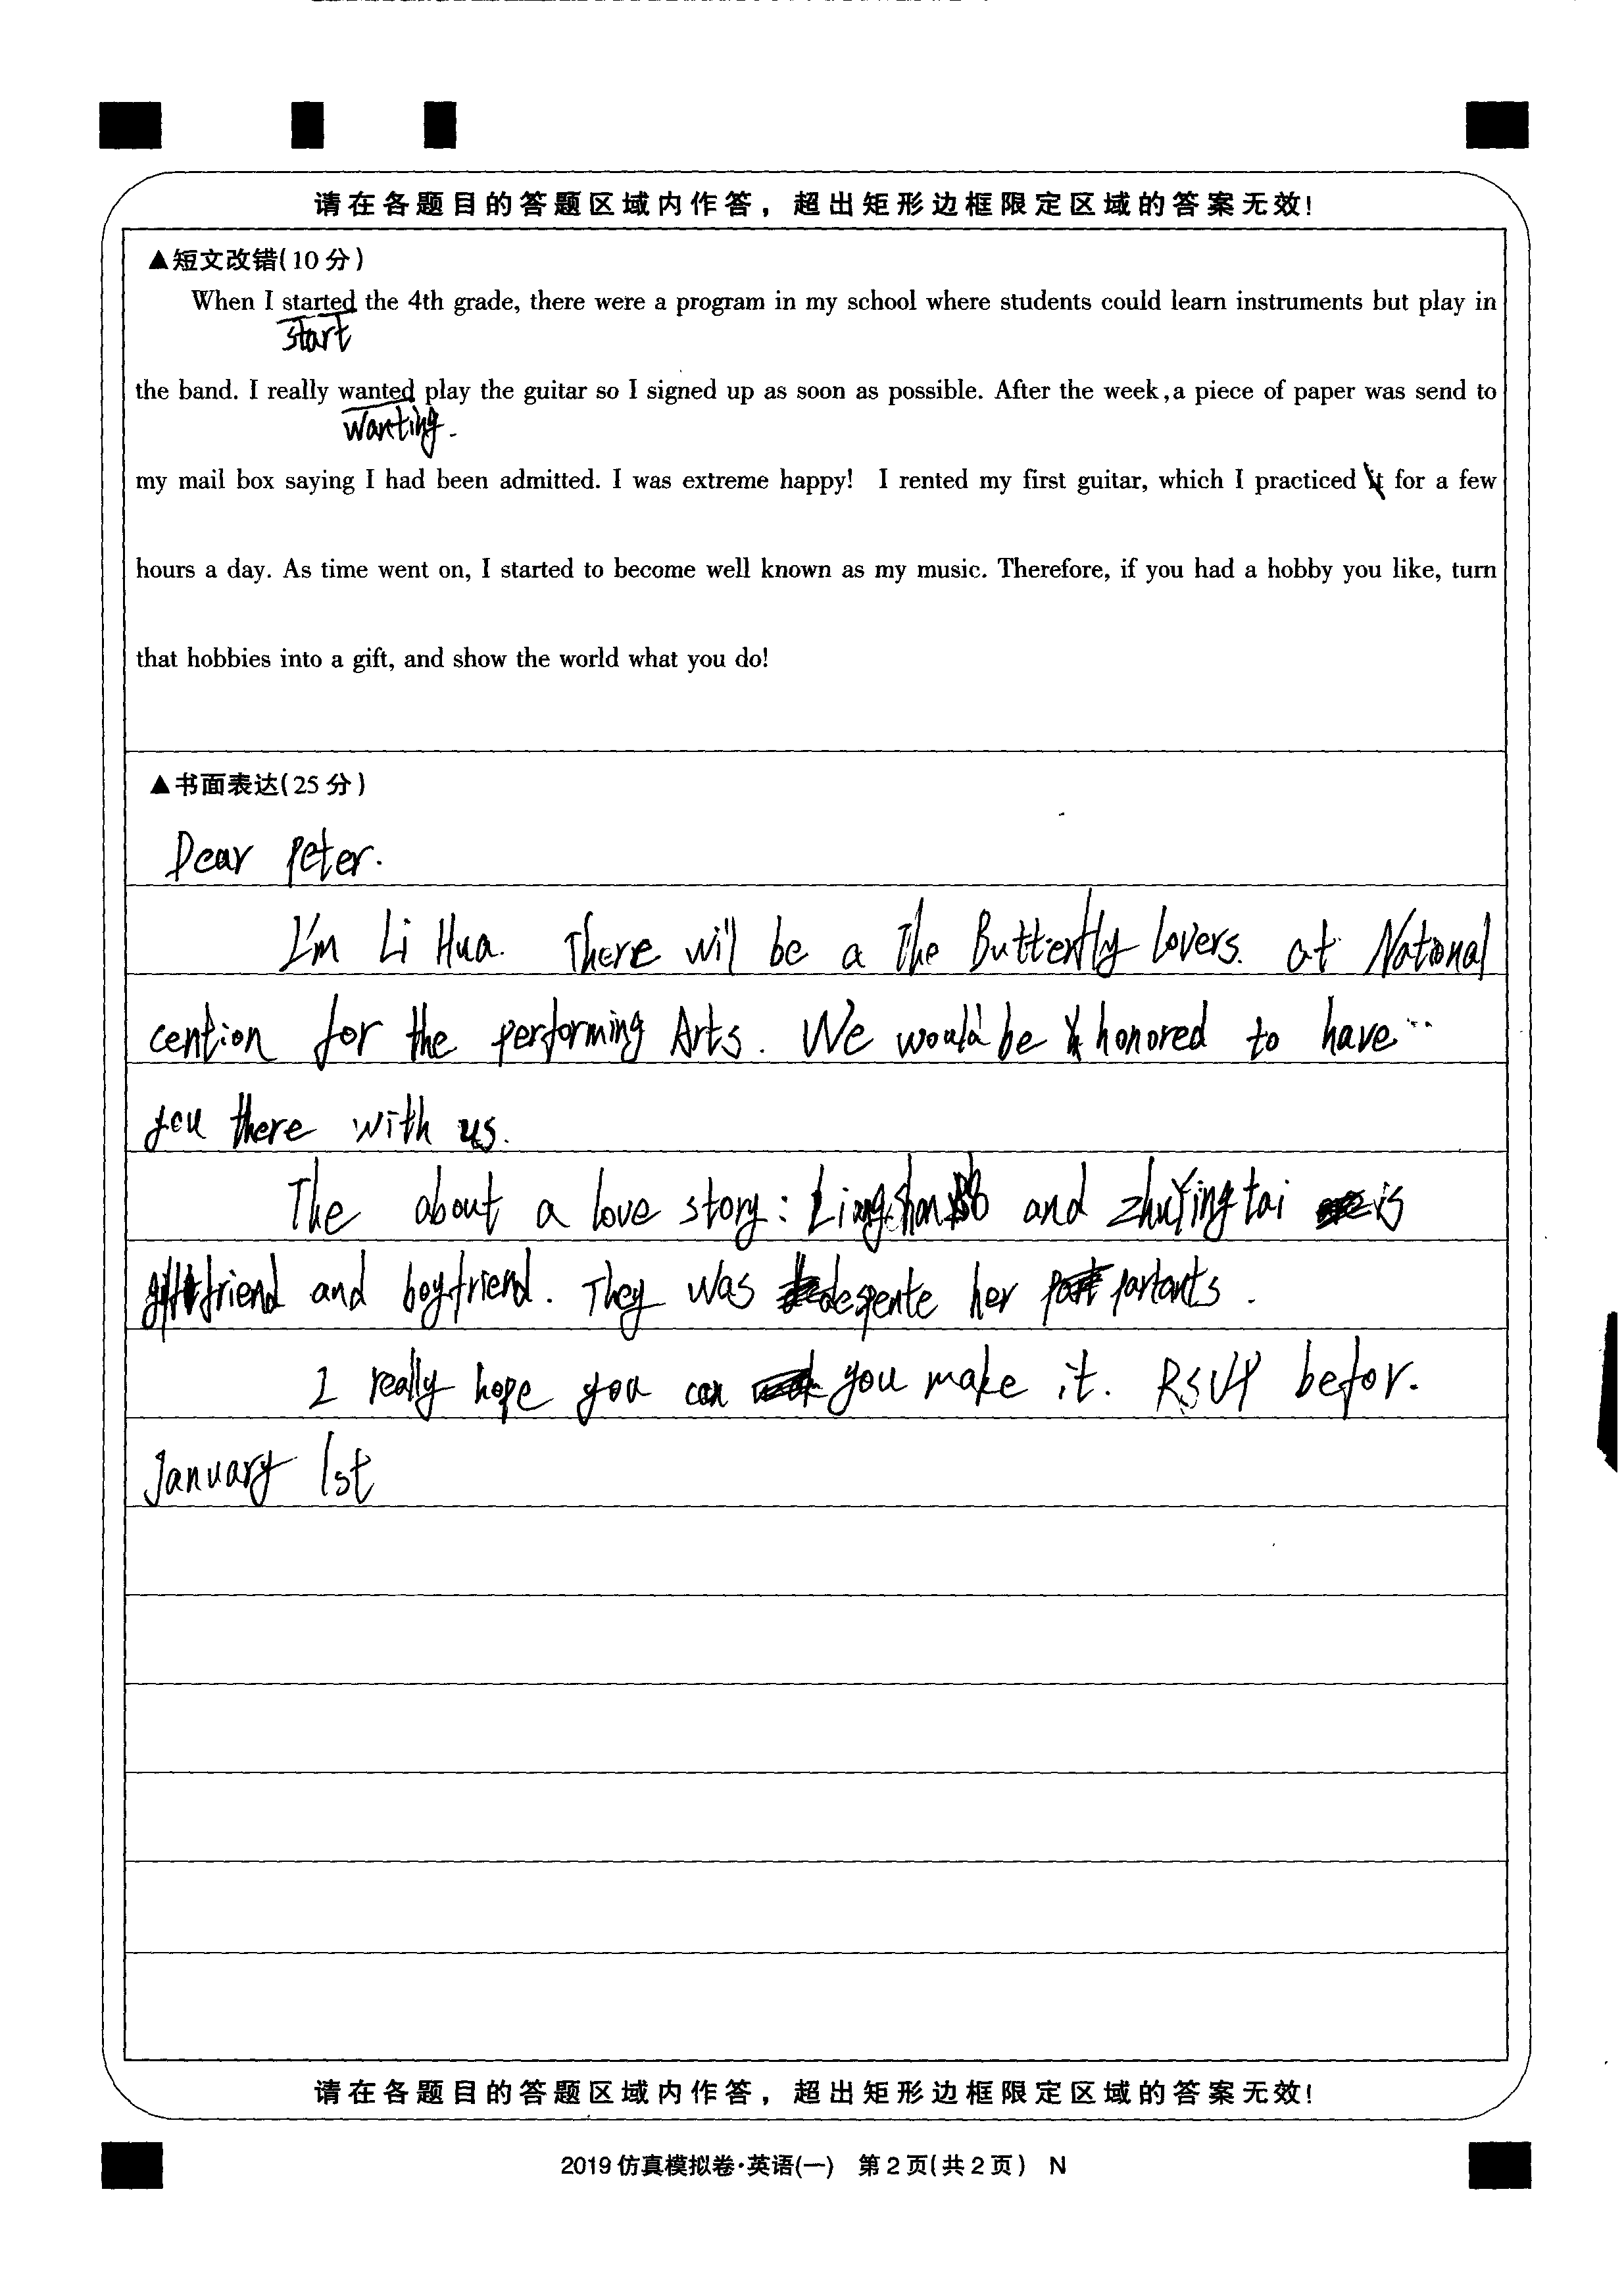 请在各题目的答题区域内作答，超出矩形边框限定区域的答案无效！
▲短文改错(10分)
When I started the 4th grade, there were a program in my school where students could learn instruments but play in
start
the band. I really wanted play the guitar so I signed up as soon as possible. After the week,a piece of paper was send to
wanting.
my mail box saying I had been admitted. I was extreme happy! I rented my first guitar, which I practiced it for a few
hours a day. As time went on, I started to become well known as my music. Therefore, if you had a hobby you like, turn
that hobbies into a gift, and show the world what you do!
▲书面表达(25分)
Dear Peter.
I'm Li Hua. There will be a The Butterfly lovers. at National
cention for the performing Arts. We would be honored to have
you there with us.
The about a love story: and zhuYingtai is
friend and boyfriend. They was her
I really hope you can you make it. RSVP befor.
January 1st
请在各题目的答题区域内作答，超出矩形边框限定区域的答案无效！
2019仿真模拟卷·英语(一) 第2页(共2页) N